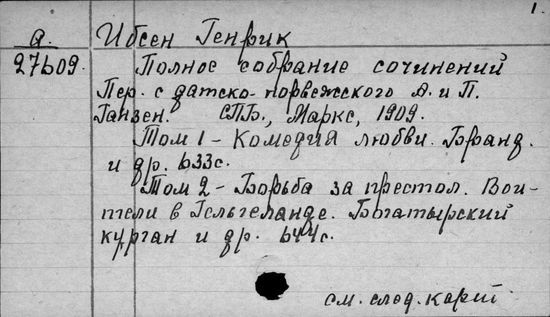 1.
а. Ибсен Генрик
27609. Полное собрание сочинений
Пер. с датско-норвежского А. и П.
Ганзен. СПБ., Маркс, 1909.
Том 1 - Комедия любви. Бранд.
и др. 633с.
Том 2 - Борьба за престол. Вои-
тели в Гельгеланде. Богатырский
курган и др. 644с.
см. след. карт